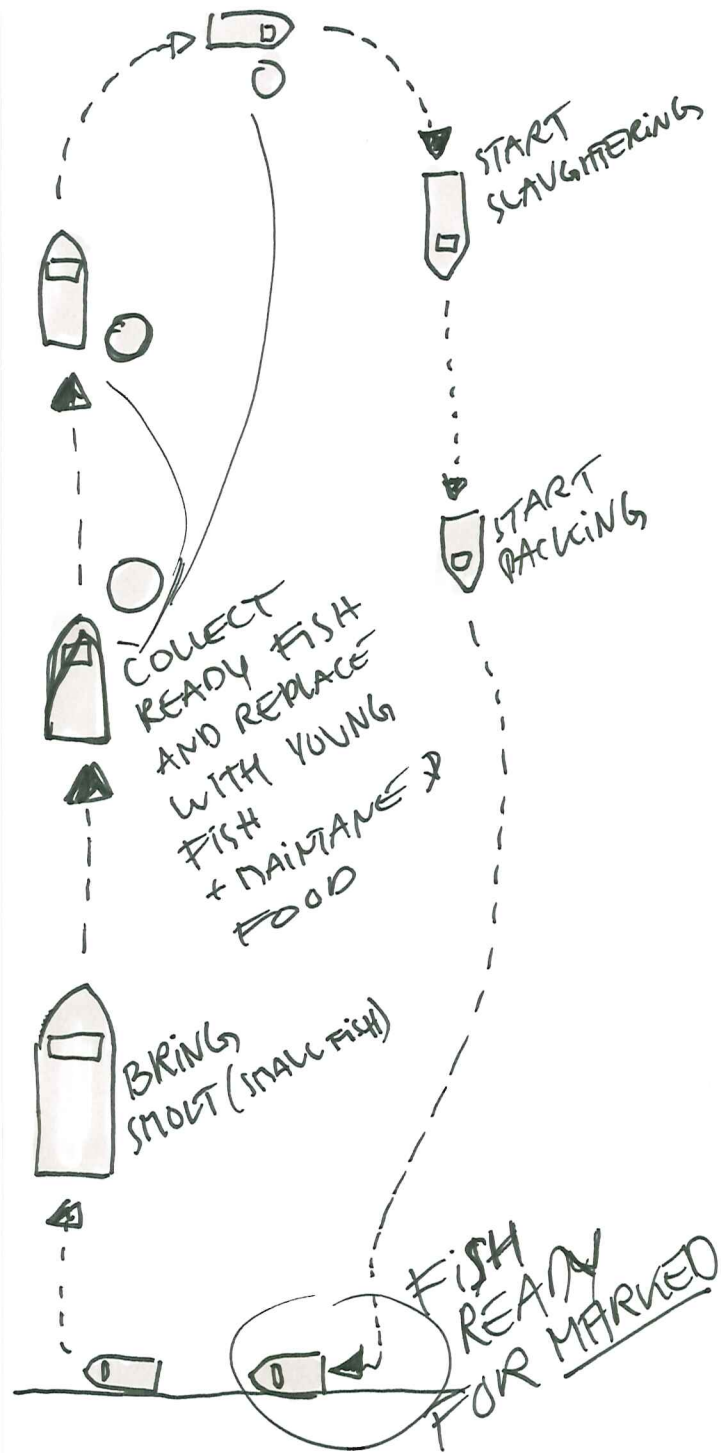 START
SLAUGHTERING
START
PACKING
COLLECT
READY FISH
AND REPLACE
WITH YOUNG
FISH
+ MAINTANE &
FOOD
BRING
SMOLT (SMALL FISH)
FISH
READY
FOR MARKED